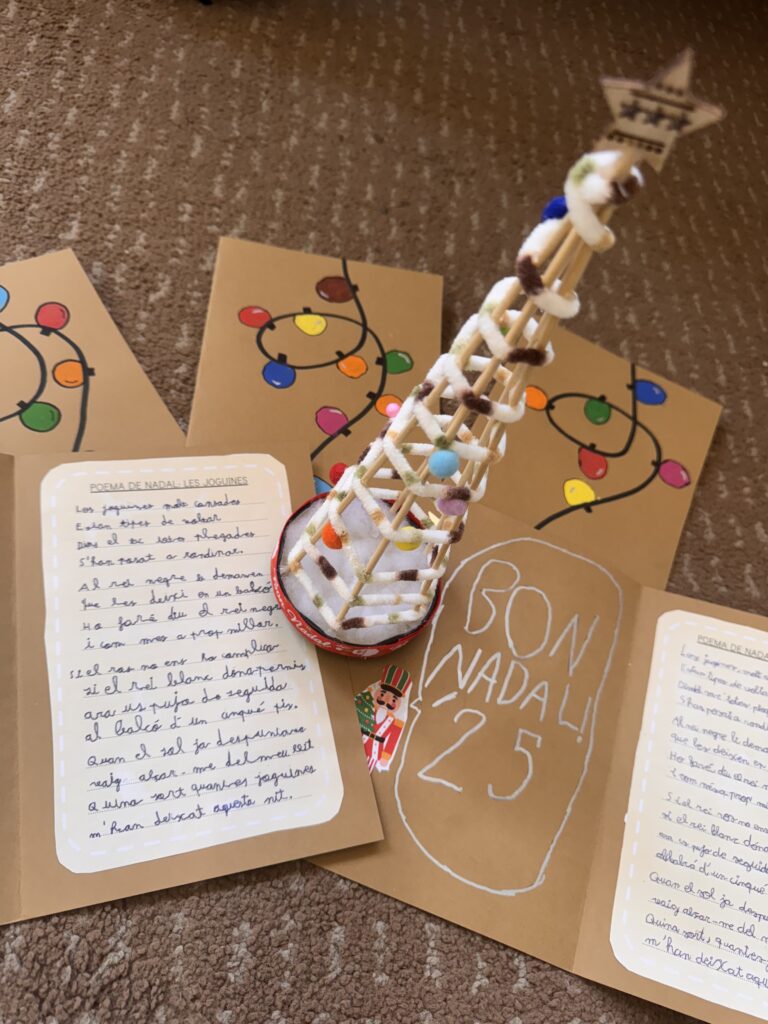 POEMA DE NADAL: LES JOGUINES
Les joguines molt cansades
Estan tipes de voltar
Dins el sac totes plegades
S'han posat a rondinar.
Al rei negre li demanen
Que les deixi en un balcó
Ho faré diu el rei negre
i com mes a prop millor.
Si el ros no ens ho complica
si el rei blanc dóna permís
ara us pujo de seguida
al balcó d'un cinquè pis.
Quan el sol ja despuntava
vaig alsar-me del meu llit
Quina sort quantes joguines
m'han deixat aquesta nit.
Bon Nadal
BON
NADAL!
'25
POEMA DE NADA
Les joguines molt
Estan tipes de volta
S'han posat a
Al rei negre li dema
que les deixin en
Ho faré diu el rei n
I com mes a prop mi
Si el rei ros no en
si el rei blanc dóna
ara us pujo de seguid
al balcó d'un cinquè
Quan el sol ja despu
vaig alsar-me del m
Quina sort, quantes jo
m'han deixat aqu